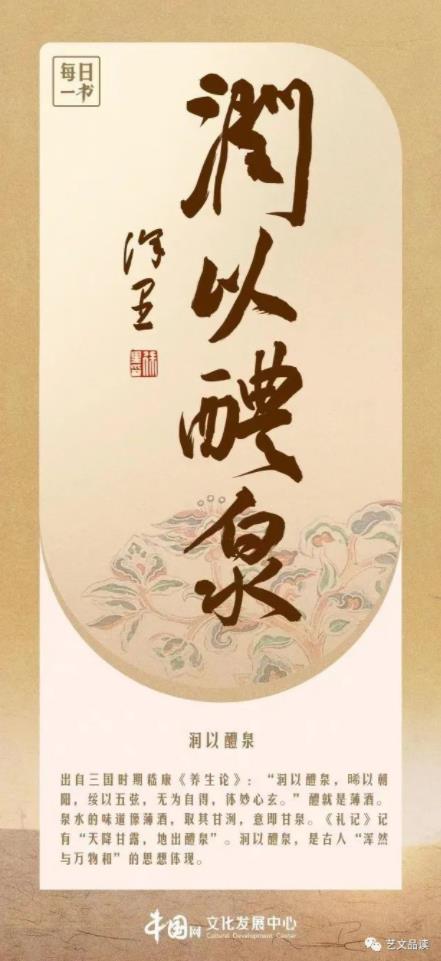 每日
一书
潤以醴泉
徐里
润以醴泉
出自三国时期嵇康《养生论》：“润以醴泉，晞以朝
阳，绥以五弦，无为自得，体妙心玄。”醴就是薄酒。
泉水的味道像薄酒，取其甘洌，意即甘泉。《礼记》记
有“天降甘露，地出醴泉”。润以醴泉，是古人“浑然
与万物和”的思想体现。
中国网 文化发展中心
Cultural Development Center
艺文品读